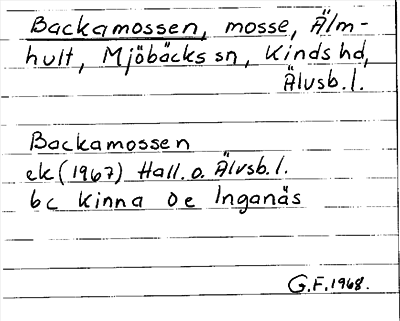 Backamossen, mosse, Älm-
hult, Mjöbäcks sn, Kinds hd,
Älvsb. l.
Backamossen
ek (1967) Hall. o. Älvsb. l.
6c Kinna 0e Inganäs
G.F. 1968.